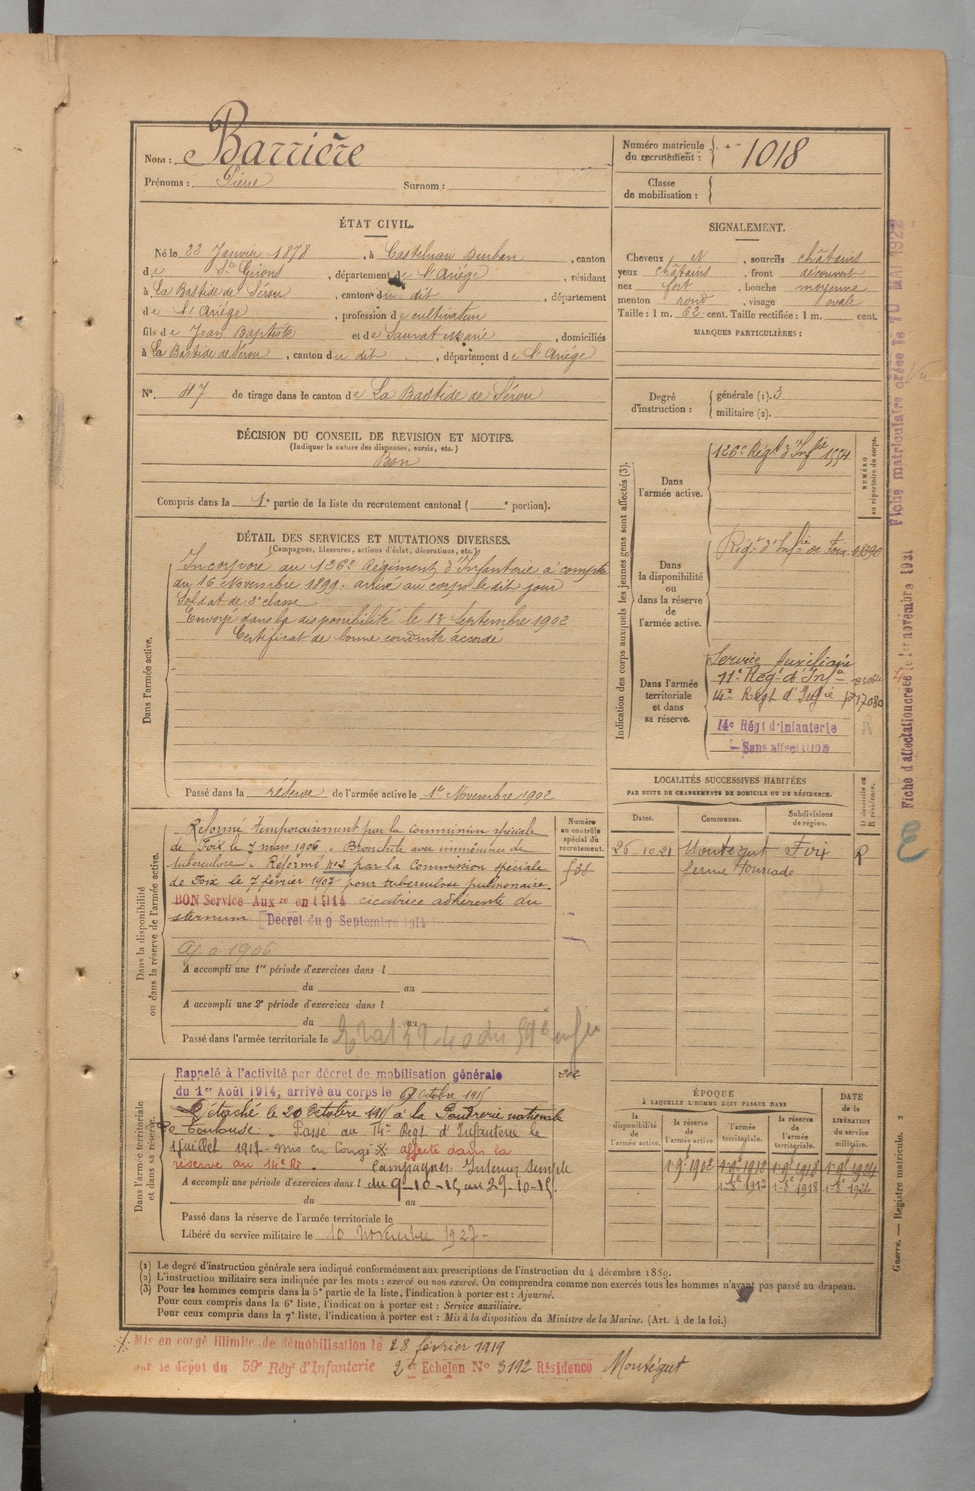 Nom : Barrière
Prénoms : Pierre Surnom :
Numéro matricule du recrutement : 1018
Classe de mobilisation :
ÉTAT CIVIL.
Né le 22 Janvier 1878, à Castelnau Durban, canton
de St Girons, département de l'Ariège, résidant
à La Bastide de Sérou, canton du dit, département
de l'Ariége, profession de cultivateur
fils de Jean Baptiste et de Saurat Marie, domiciliés
à La Bastide de Sérou, canton du dit, département de l'Ariége
N° 47 de tirage dans le canton de La Bastide de Sérou
DÉCISION DU CONSEIL DE REVISION ET MOTIFS.
(Indiquer la nature des dispenses, sursis, etc.)
Bon
Compris dans la 1e partie de la liste du recrutement cantonal ( e portion).
SIGNALEMENT.
Cheveux N, sourcils châtains
yeux châtains, front découvert
nez fort, bouche moyenne
menton rond, visage ovale
Taille : 1 m. 62 cent. Taille rectifiée : 1 m. cent.
MARQUES PARTICULIÈRES :
Degré d'instruction : générale (1). 3
militaire (2).
DÉTAIL DES SERVICES ET MUTATIONS DIVERSES.
(Campagnes, blessures, actions d'éclat, décorations, etc.)
Dans l'armée active.
Incorporé au 126e Régiment d'Infanterie à compter
du 16 Novembre 1899. arrivé au corps le dit jour
Soldat de 2e classe
Envoyé dans la disponibilité le 18 Septembre 1902
Certificat de bonne conduite accordé
Passé dans la réserve de l'armée active le 1er Novembre 1902
Dans la disponibilité ou dans la réserve de l'armée active.
Réformé temporairement par la commission spéciale
de Foix le 7 mars 1906. Bronchite avec imminence de
tuberculose. Réformé n°2 par la Commission spéciale
de Foix le 7 février 1907 pour tuberculose pulmonaire.
BON Service Auxre en 1914 cicatrice adhérente du
sternum Décret du 9 Septembre 1914
1906
A accompli une 1re période d'exercices dans l
du au
A accompli une 2e période d'exercices dans l
du au
Passé dans l'armée territoriale le
Numéro au contrôle spécial du recrutement.
Dans l'armée territoriale et dans sa réserve.
Rappelé à l'activité par décret de mobilisation générale
du 1er Août 1914, arrivé au corps le 9 Octobre 1915
Détaché le 20 Octobre 1915 à la Poudrerie nationale
de Toulouse. Passé au 14e Régt d'Infanterie le
1 juillet 1917 mis en Congé X affecté dans la
réserve au 14e RI. Campagnes Intérieur simple
A accompli une période d'exercices dans l du 9-10-15 au 29-10-15.
du au
Passé dans la réserve de l'armée territoriale le
Libéré du service militaire le 10 novembre 1927
Indication des corps auxquels les jeunes gens sont affectés (3).
NUMÉRO au répertoire du corps.
Dans l'armée active.
126e Régt d'Infie 1554
Dans la disponibilité ou dans la réserve de l'armée active.
Régt d'Infie de Foix
Dans l'armée territoriale et dans sa réserve.
Service Auxiliaire
14e Régt d'Infie 17080
14e Régt d'Infanterie
Sans affectation
LOCALITÉS SUCCESSIVES HABITÉES
PAR SUITE DE CHANGEMENTS DE DOMICILE OU DE RÉSIDENCE.
Dates. Communes. Subdivisions de région. D domicile ou R résidence.
26.10.21 Montégut Foix R
ferme Fourcade
ÉPOQUE
À LAQUELLE L'HOMME DOIT PASSER DANS
la disponibilité de l'armée active. la réserve de l'armée active. l'armée territoriale. la réserve de l'armée territoriale. DATE de la LIBÉRATION du service militaire.
1 9e 1902 1 9e 1912 1 9e 1918 1 9e 1924
(1) Le degré d'instruction générale sera indiqué conformément aux prescriptions de l'instruction du 4 décembre 1889.
(2) L'instruction militaire sera indiquée par les mots : exercé ou non exercé. On comprendra comme non exercés tous les hommes n'ayant pas passé au drapeau.
(3) Pour les hommes compris dans la 5e partie de la liste, l'indication à porter est : Ajourné.
Pour ceux compris dans la 6e liste, l'indication à porter est : Service auxiliaire.
Pour ceux compris dans la 7e liste, l'indication à porter est : Mis à la disposition du Ministre de la Marine. (Art. 4 de la loi.)
Mis en congé illimité de démobilisation le 28 février 1919
par le dépôt du 59e Régt d'Infanterie 2e Echelon N° 3192 Résidence Montégut
Fiche d'affectation créée le 1er novembre 1921
Fiche matriculaire créée le 10 MAI 1922
Guerre. — Registre matricule. 2